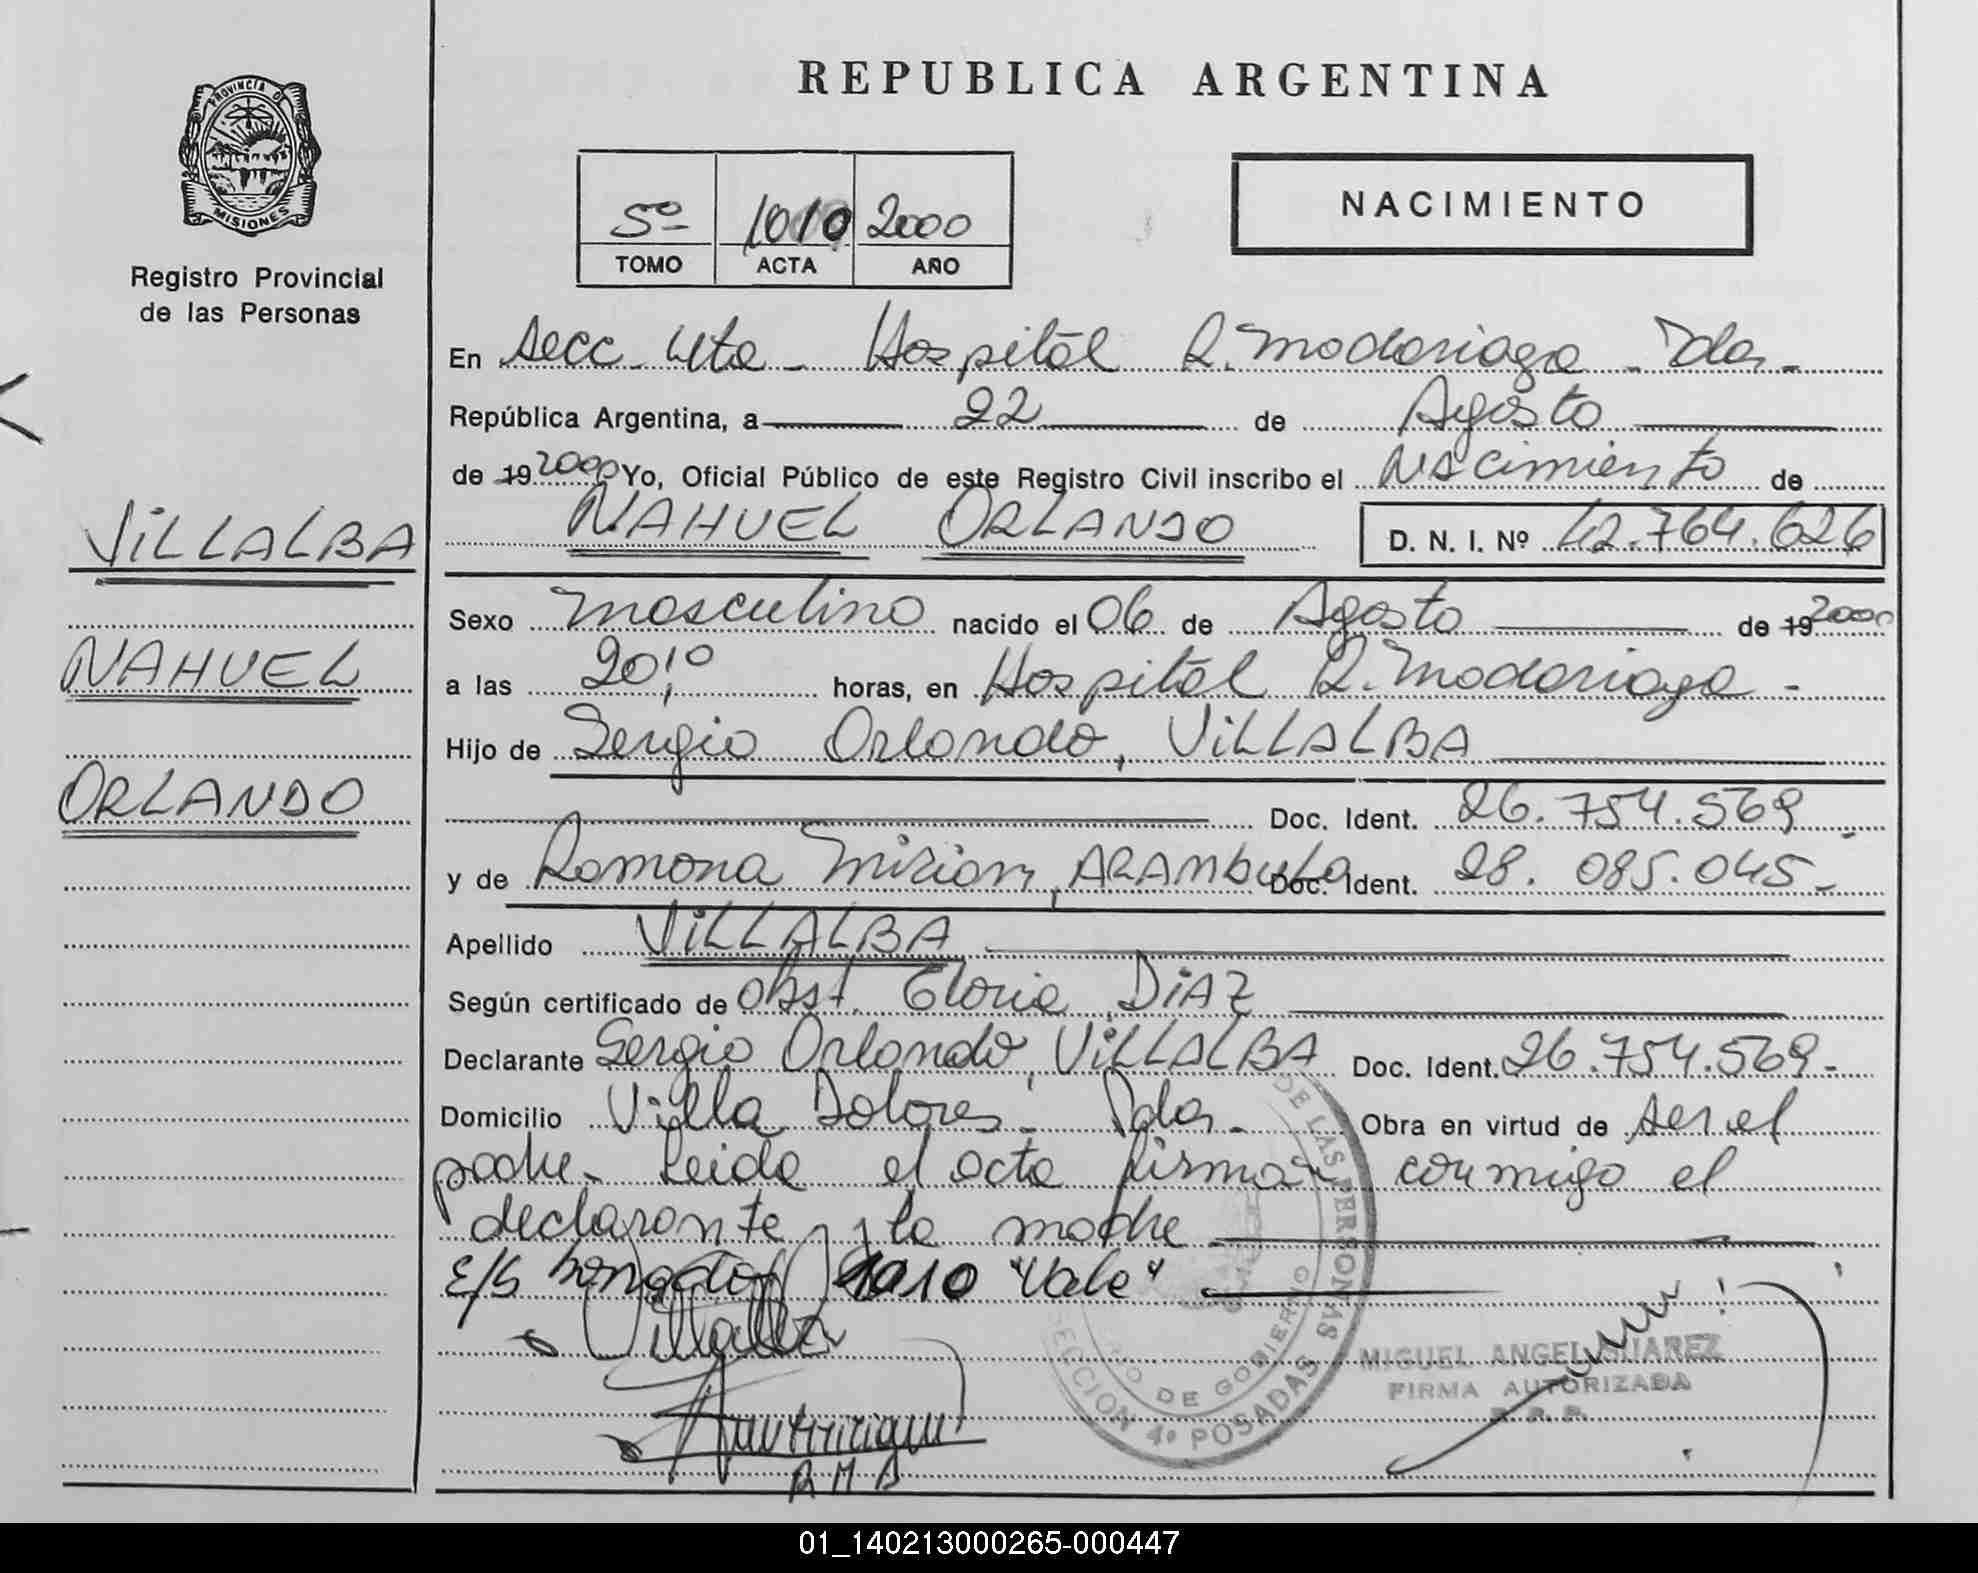 REPUBLICA ARGENTINA
PROVINCIA DE
MISIONES
Registro Provincial
de las Personas
5º 1010 2000
TOMO ACTA AÑO
NACIMIENTO
En Secc. 4ta - Hospital R. Madariaga - Pdas.-
República Argentina, a 22 de Agosto
de 19 2000 Yo, Oficial Público de este Registro Civil inscribo el Nacimiento de
NAHUEL ORLANDO D. N. I. Nº 42.764.626
VILLALBA
NAHUEL
ORLANDO
Sexo masculino nacido el 06 de Agosto de 19 2000
a las 20,10 horas, en Hospital R. Madariaga -
Hijo de Sergio Orlando, VILLALBA
Doc. Ident. 26.754.569.
y de Ramona Mirian, ARAMbulo Doc. Ident. 28.085.045.-
Apellido VILLALBA
Según certificado de Obst. Gloria DIAZ
Declarante Sergio Orlando, VILLALBA Doc. Ident. 26.754.569.-
Domicilio Villa Dolores - Pdas.- Obra en virtud de ser el
padre. Leida el acta firman conmigo el
declarante y la madre
E/S 1010 "Vale"
Villalba
DE LAS PERSONAS
DE GOBIERNO
SECCION 4º POSADAS
MIGUEL ANGEL SUAREZ
FIRMA AUTORIZADA
R. P. P.
01_140213000265-000447